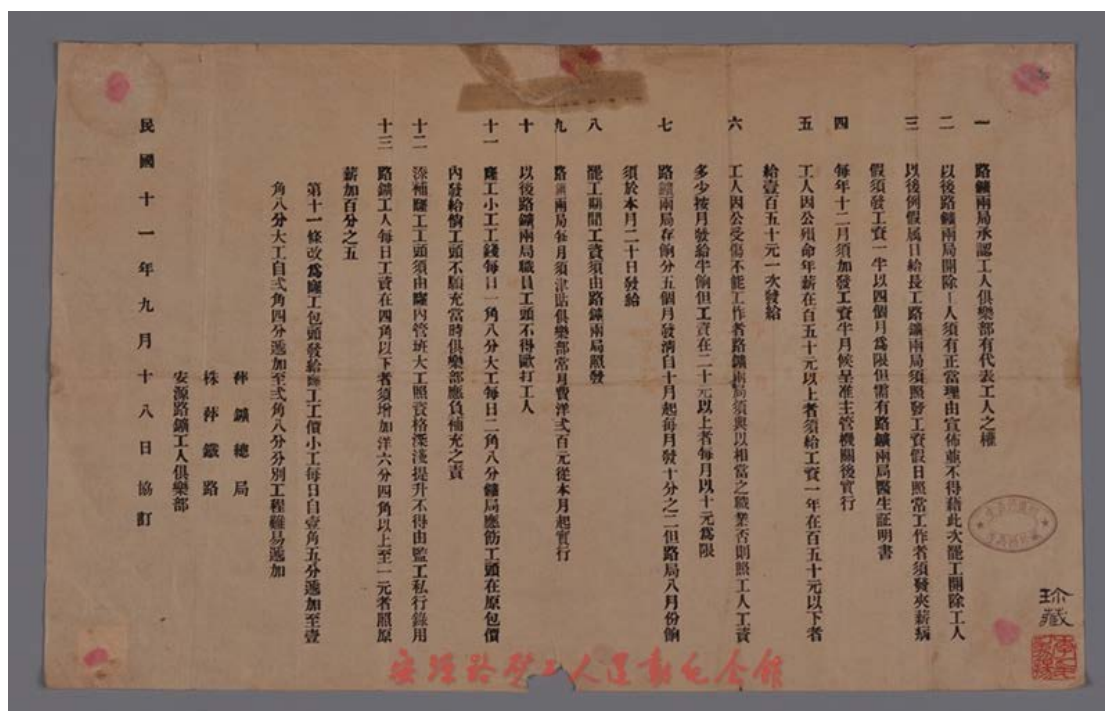 珍藏
一 路鑛兩局承認工人俱樂部有代表工人之權
二 以後路鑛兩局開除工人須有正當理由宣佈並不得藉此次罷工開除工人
三 以後例假属日給長工路鑛兩局須照發工資假日照常工作者須發夾薪病
假須發工資一半以四個月爲限但需有路鑛兩局醫生証明書
四 每年十二月須加發工資半月候呈准主管機關後實行
五 工人因公殞命年薪在百五十元以上者須給工資一年在百五十元以下者
給壹百五十元一次發給
六 工人因公受傷不能工作者路鑛兩局須與以相當之職業否則照工人工資
多少按月發給半餉但工資在二十元以上者每月以十元爲限
七 路鑛兩局存餉分五個月發清自十月起每月發十分之二但路局八月份餉
須於本月二十日發給
八 罷工期間工資須由路鑛兩局照發
九 路鑛兩局每月須津貼俱樂部常月費洋弍百元從本月起實行
十 以後路鑛兩局職員工頭不得毆打工人
十一 窿工小工工錢每日一角八分大工每日二角八分鑛局應飭工頭在原包價
內發給倘工頭不願充當時俱樂部應負補充之責
十二 添補窿工工頭須由窿內管班大工照資格深淺提升不得由監工私行錄用
十三 路鑛工人每日工資在四角以下者須增加洋六分四角以上至一元者照原
薪加百分之五
第十一條改爲窿工包頭發給窿工工價小工每日自壹角五分遞加至壹
角八分大工自弍角四分遞加至弍角八分分別工程難易遞加
萍鑛總局
株萍鐵路
安源路鑛工人俱樂部
民國十一年九月十八日協訂
安源路矿工人运动纪念馆